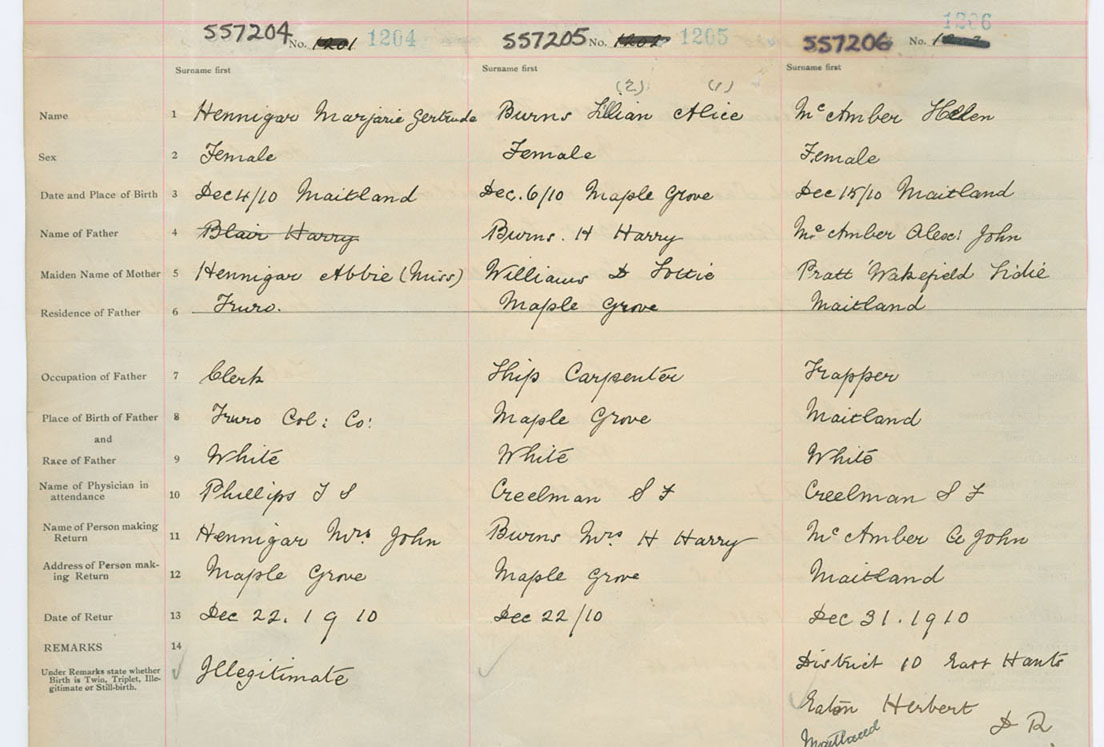 557204 No. 1201 1204 557205 No. 1202 1205 557206 No. 1206
Surname first Surname first Surname first
(2) (1)
Name 1 Hennigar Marjorie Gertrude Burns Lillian Alice McAmber Helen
Sex 2 Female Female Female
Date and Place of Birth 3 Dec 4/10 Maitland Dec. 6/10 Maple Grove Dec 15/10 Maitland
Name of Father 4 Blair Harry Burns. H Harry McAmber Alex: John
Maiden Name of Mother 5 Hennigar Abbie (Miss) Williams D Lottie Pratt Wakefield Lidie
Residence of Father 6 Truro. Maple Grove Maitland
Occupation of Father 7 Clerk Ship Carpenter Trapper
Place of Birth of Father 8 Truro Col: Co: Maple Grove Maitland
and
Race of Father 9 White White White
Name of Physician in
attendance 10 Phillips T S Creelman S F Creelman S F
Name of Person making
Return 11 Hennigar Mrs John Burns Mrs H Harry McAmber A John
Address of Person mak-
ing Return 12 Maple Grove Maple Grove Maitland
Date of Retur 13 Dec 22. 1910 Dec 22/10 Dec 31. 1910
REMARKS 14
Under Remarks state whether
Birth is Twin, Triplet, Ille-
gitimate or Still-birth.
Illegitimate
District 10 East Hants
Eaton Herbert D R
Maitland